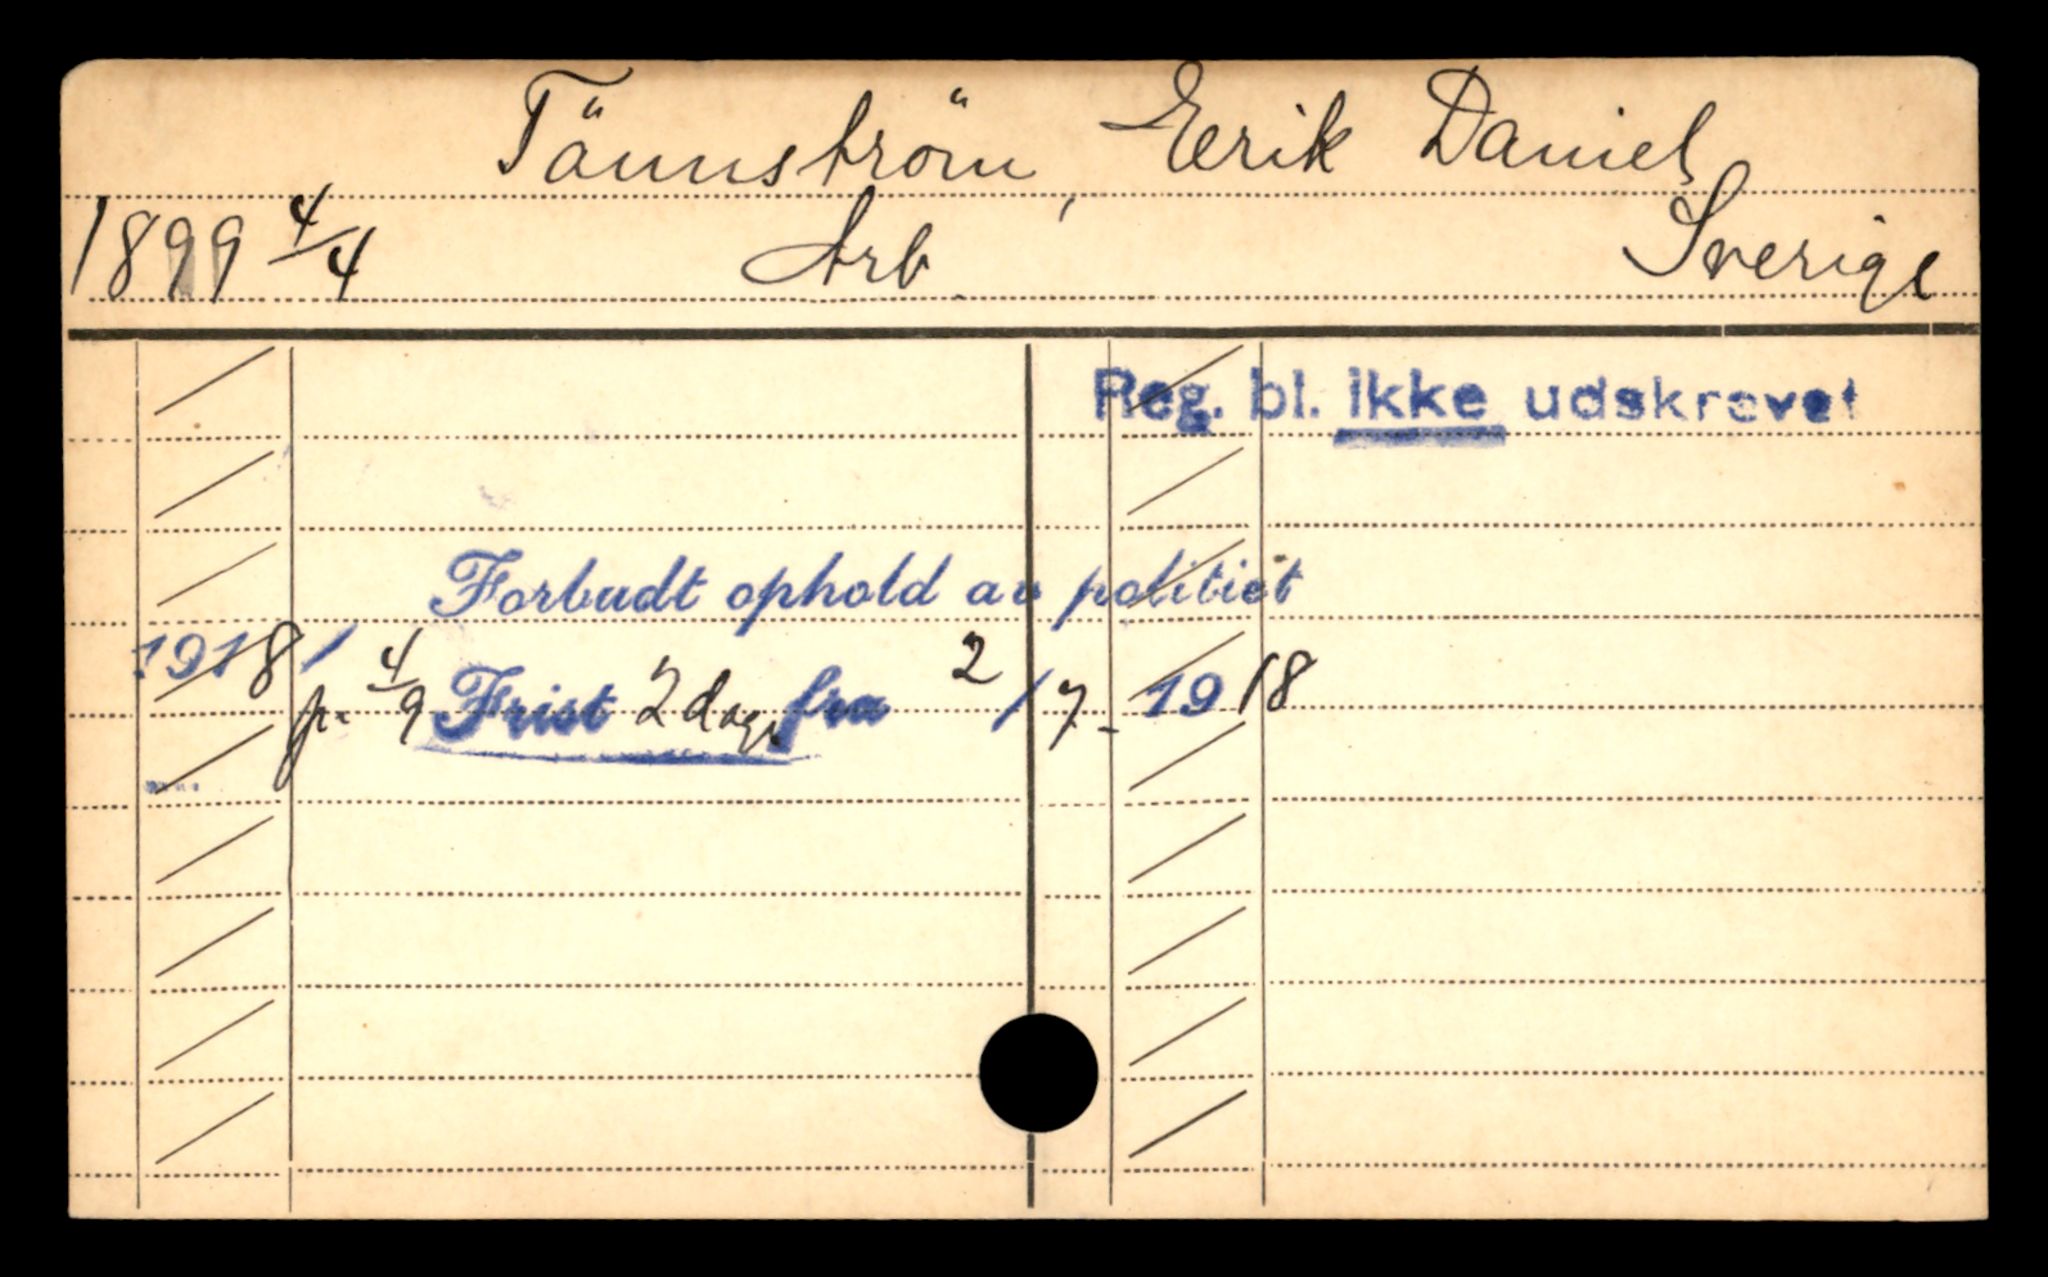 Tännström, Erik Daniel
1899 4/4 Arb. Sverige
Reg. bl. ikke udskrevet
Forbudt ophold av politiet
1918 / 4/9 Frist 2 dag. fra 2/7-1918